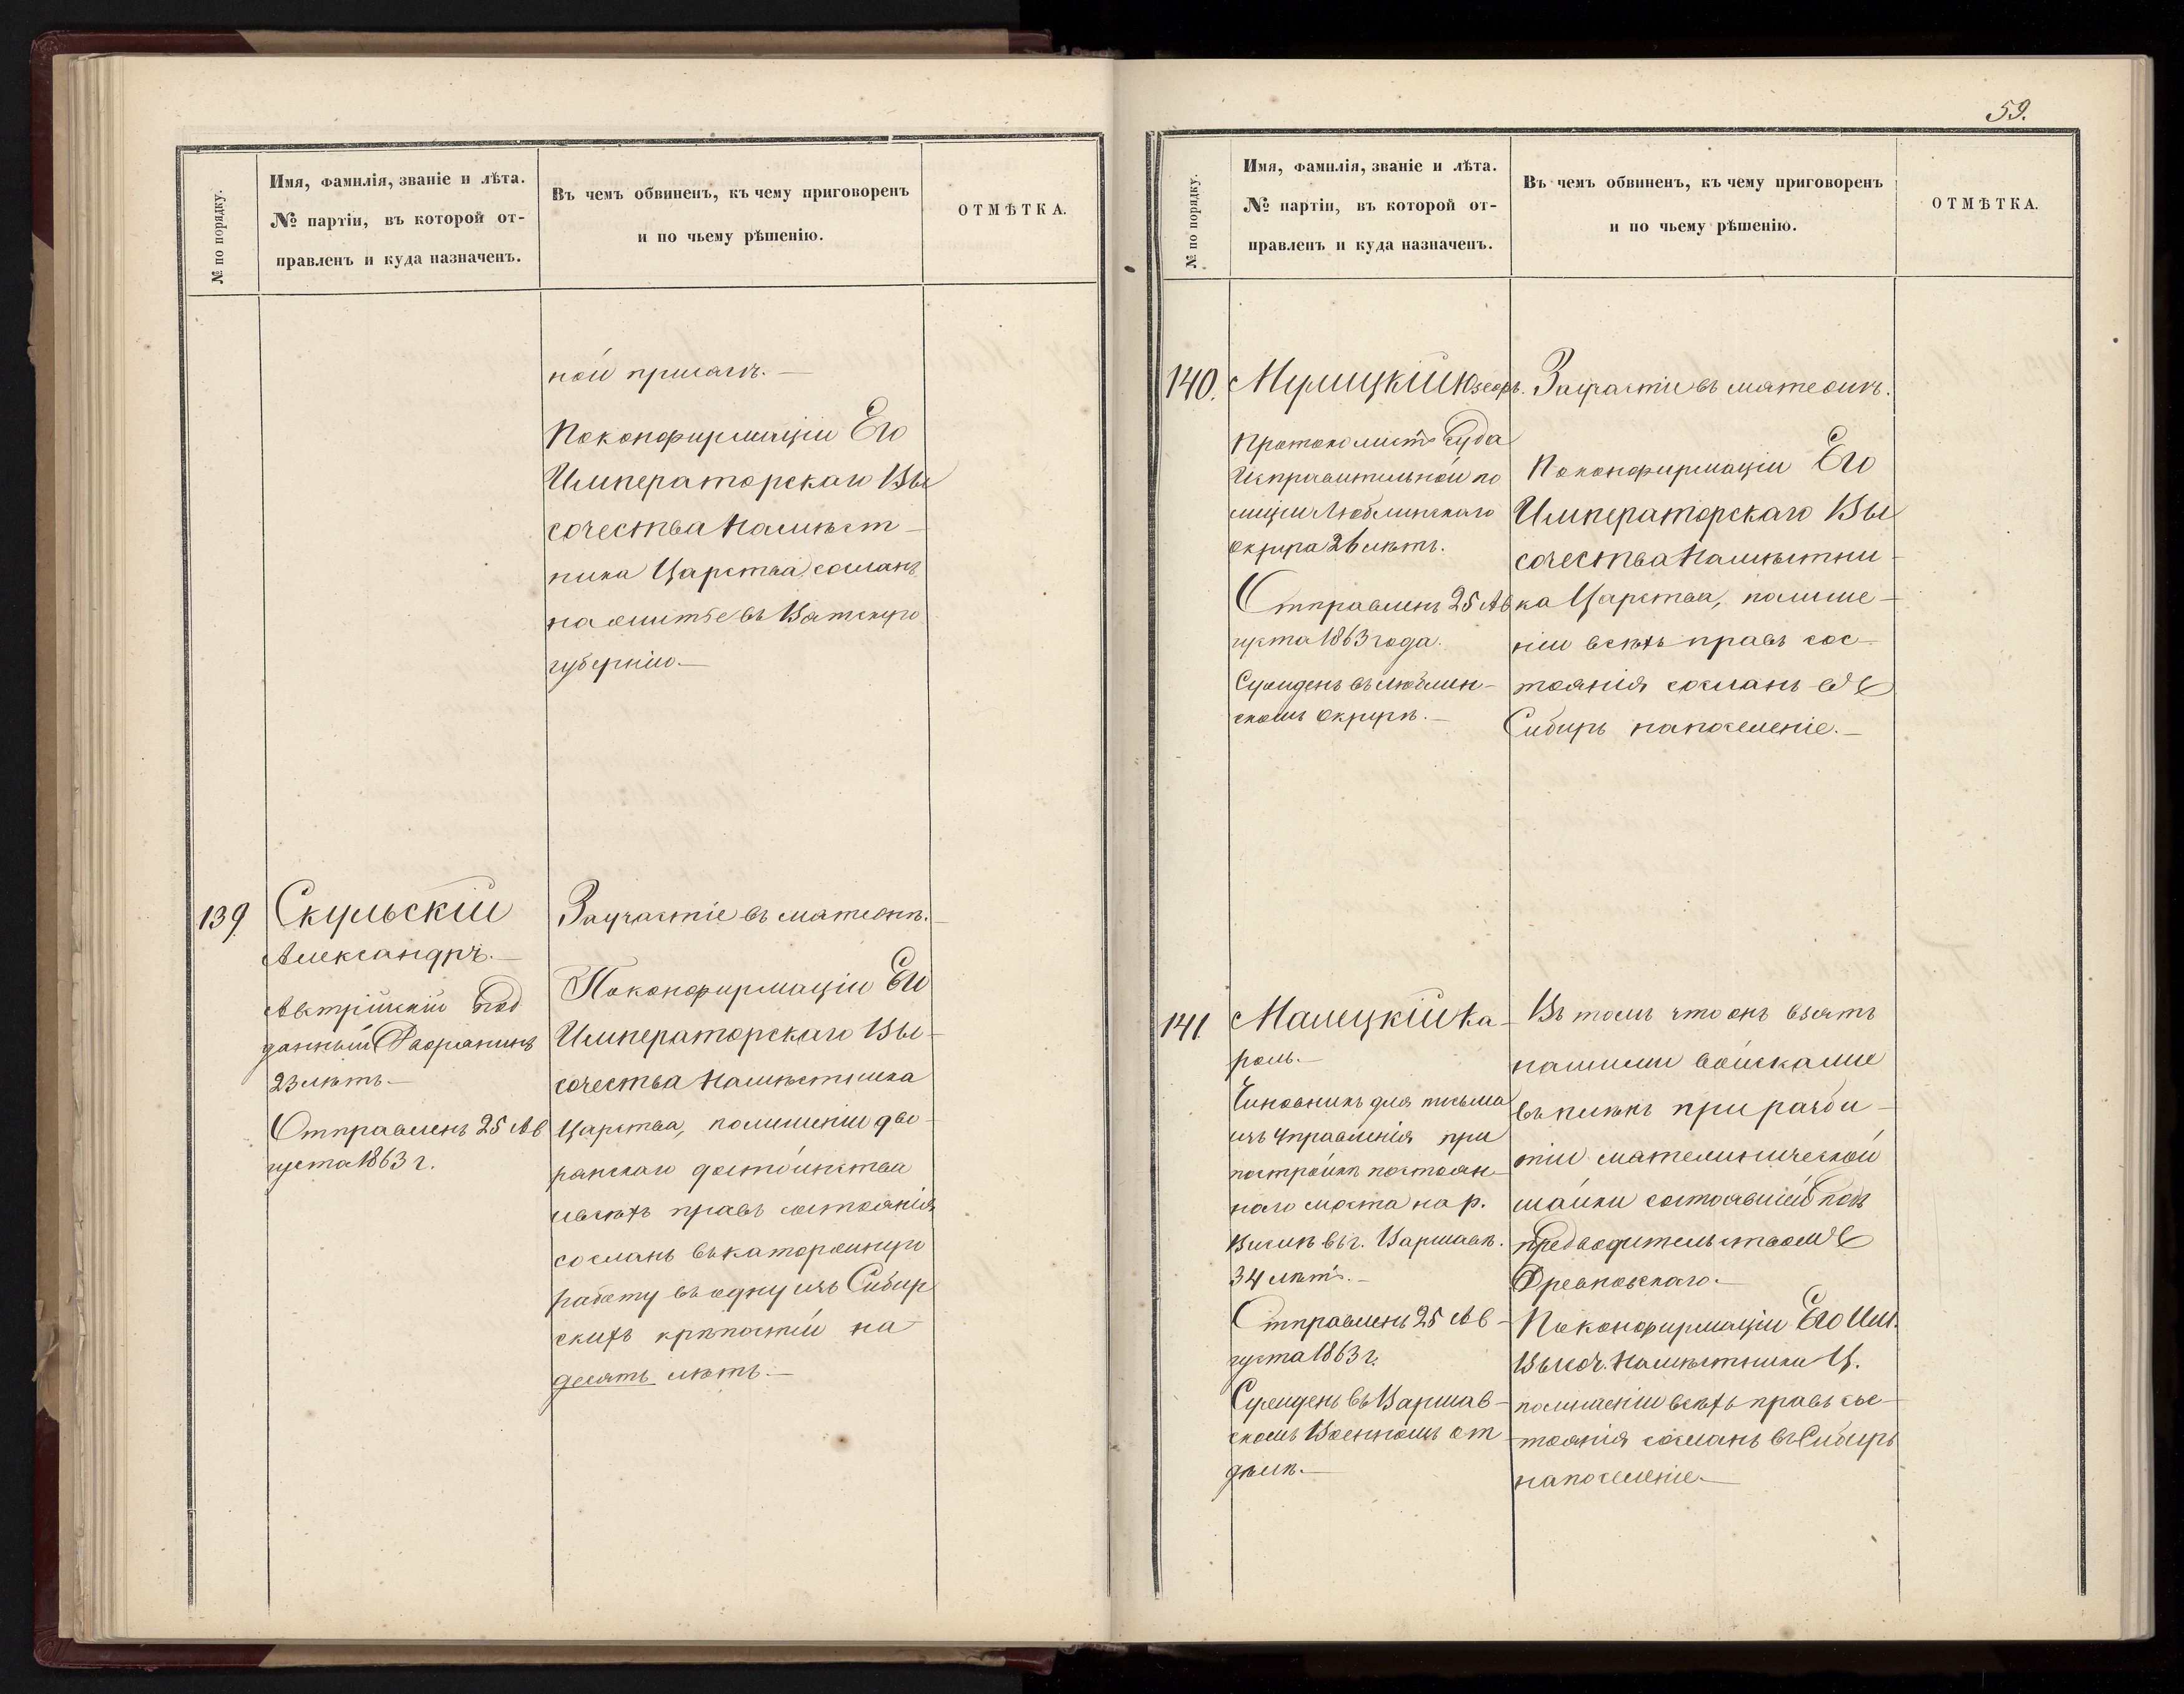 № по порядку.
Имя, фамилія, званіе и лѣта.
№ партіи, въ которой от-
правленъ и куда назначенъ.
Въ чемъ обвиненъ, къ чему приговоренъ
и по чьему рѣшенію.
ОТМѢТКА.
ной присягѣ.—
По конфирмаціи Его
Императорскаго Вы
сочества Намѣст-
ника Царства, сосланъ
на житье въ Вятскую
губернію.—
139
Скульскій
Александръ.—
Австрійскій Под
данный Дворянинъ
23 лѣтъ.—
Отправленъ 25 Ав
густа 1863 г.
За участіе въ мятежѣ.—
По конфирмаціи Его
Императорскаго Вы-
сочества Намѣстника
Царства, по лишеніи дво-
рянскаго достоинства
и всѣхъ правъ состоянія
сосланъ въ каторжную
работу въ одну изъ Сибир
скихъ крѣпостей на
десять лѣтъ.—
59.
№ по порядку.
Имя, фамилія, званіе и лѣта.
№ партіи, въ которой от-
правленъ и куда назначенъ.
Въ чемъ обвиненъ, къ чему приговоренъ
и по чьему рѣшенію.
ОТМѢТКА.
140.
Мулицкій
Протоколистъ Суда
Исправительной по
лиціи Люблинскаго
округа 26 лѣтъ.
Отправленъ 25 Ав
густа 1863 года.
Сужденъ въ Люблин-
скомъ округѣ.—
За участіе въ мятежѣ.
По конфирмаціи Его
Императорскаго Вы
сочества Намѣстни-
ка Царства, по лише-
ніи всѣхъ правъ сос-
тоянія сосланъ въ
Сибирь на поселеніе.—
141
Малецкій Ка-
роль.—
Чиновникъ для письма
изъ Управленія при
постройкѣ постоян-
наго моста на р.
Вислѣ въ г. Варшавѣ.
34 лѣтъ.—
Отправленъ 25 Ав-
густа 1863 г.
Сужденъ въ Варшав-
скомъ Военномъ от
дѣлѣ.—
Въ томъ что онъ взятъ
нашими войсками
въ плѣнъ при разби-
тіи мятежнической
шайки состоявшей подъ
предводительствомъ
Древновскаго.—
По конфирмаціи Его Им.
Высоч. Намѣстника Ц.
по лишеніи всѣхъ правъ сос-
тоянія сосланъ въ Сибирь
на поселеніе.—